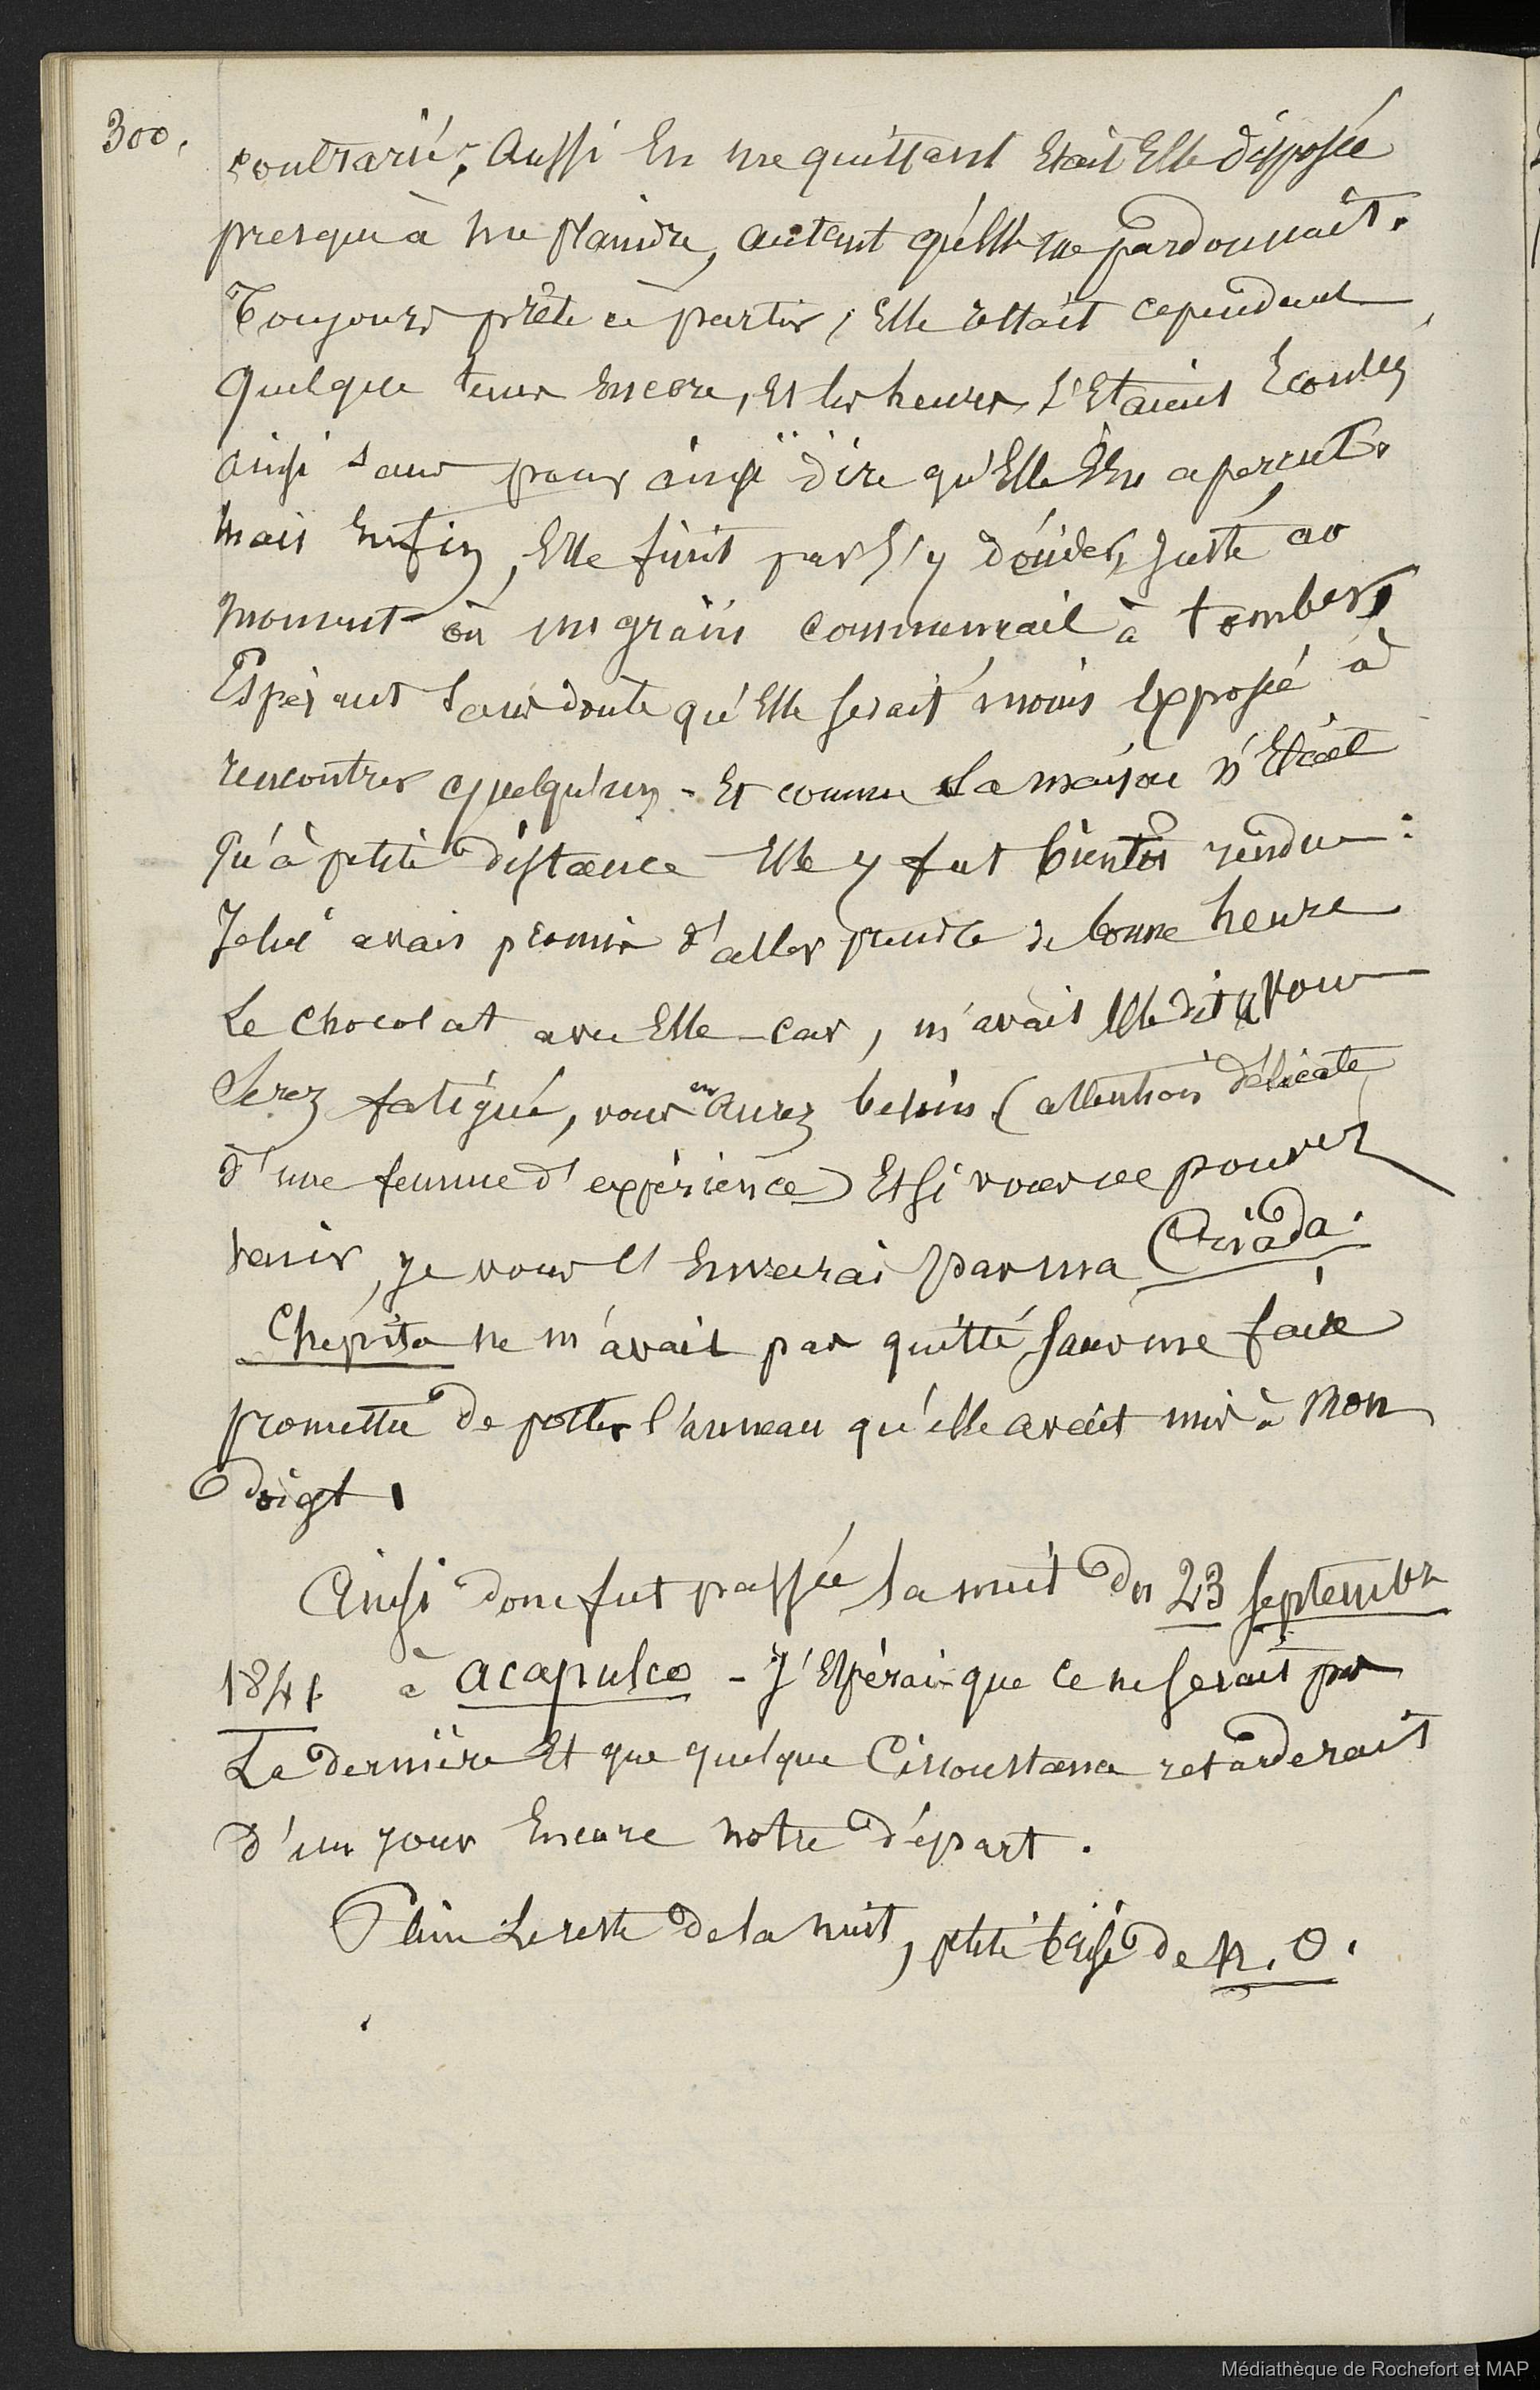 300.
contrarié; Aussi En me quittant Etait Elle disposée
presqu'à me plaindre, autant qu'Elle me pardonnait.
Toujours prête à partir, Elle restait cependant
quelque tems Encore, Et les heures s'Etaient Ecoulées
ainsi sans pour ainsi dire qu'Elle s'En aperçut.
Mais Enfin, Elle finit par s'y décider, juste au
moment où un grain commençait à tomber,
Espérant sans doute qu'Elle serait moins Exposée à
rencontrer quelqu'un - Et comme sa maison n'Etait
qu'à petite distance Elle y fut bientôt rendue:
Je lui avais promis d'aller prendre de bonne heure
Le chocolat avec Elle - car, m'avait Elle dit « vous
serez fatigué, vous en aurez besoin (attention délicate
d'une femme d'expérience) Et si vous ne pouvez
venir, je vous l'Enverrai par ma Criada.
Chépita ne m'avait pas quitté sans me faire
promettre de porter l'anneau qu'elle avait mis à mon
doigt.
Ainsi donc fut passée la nuit du 23 septembre
1841 à acapulco - J'Espérais que ce ne serait pas
La dernière Et que quelque Circonstance retarderait
d'un jour Encore notre départ.
Pluie Le reste de la nuit, petite brise de N. O.
Médiathèque de Rochefort et MAP